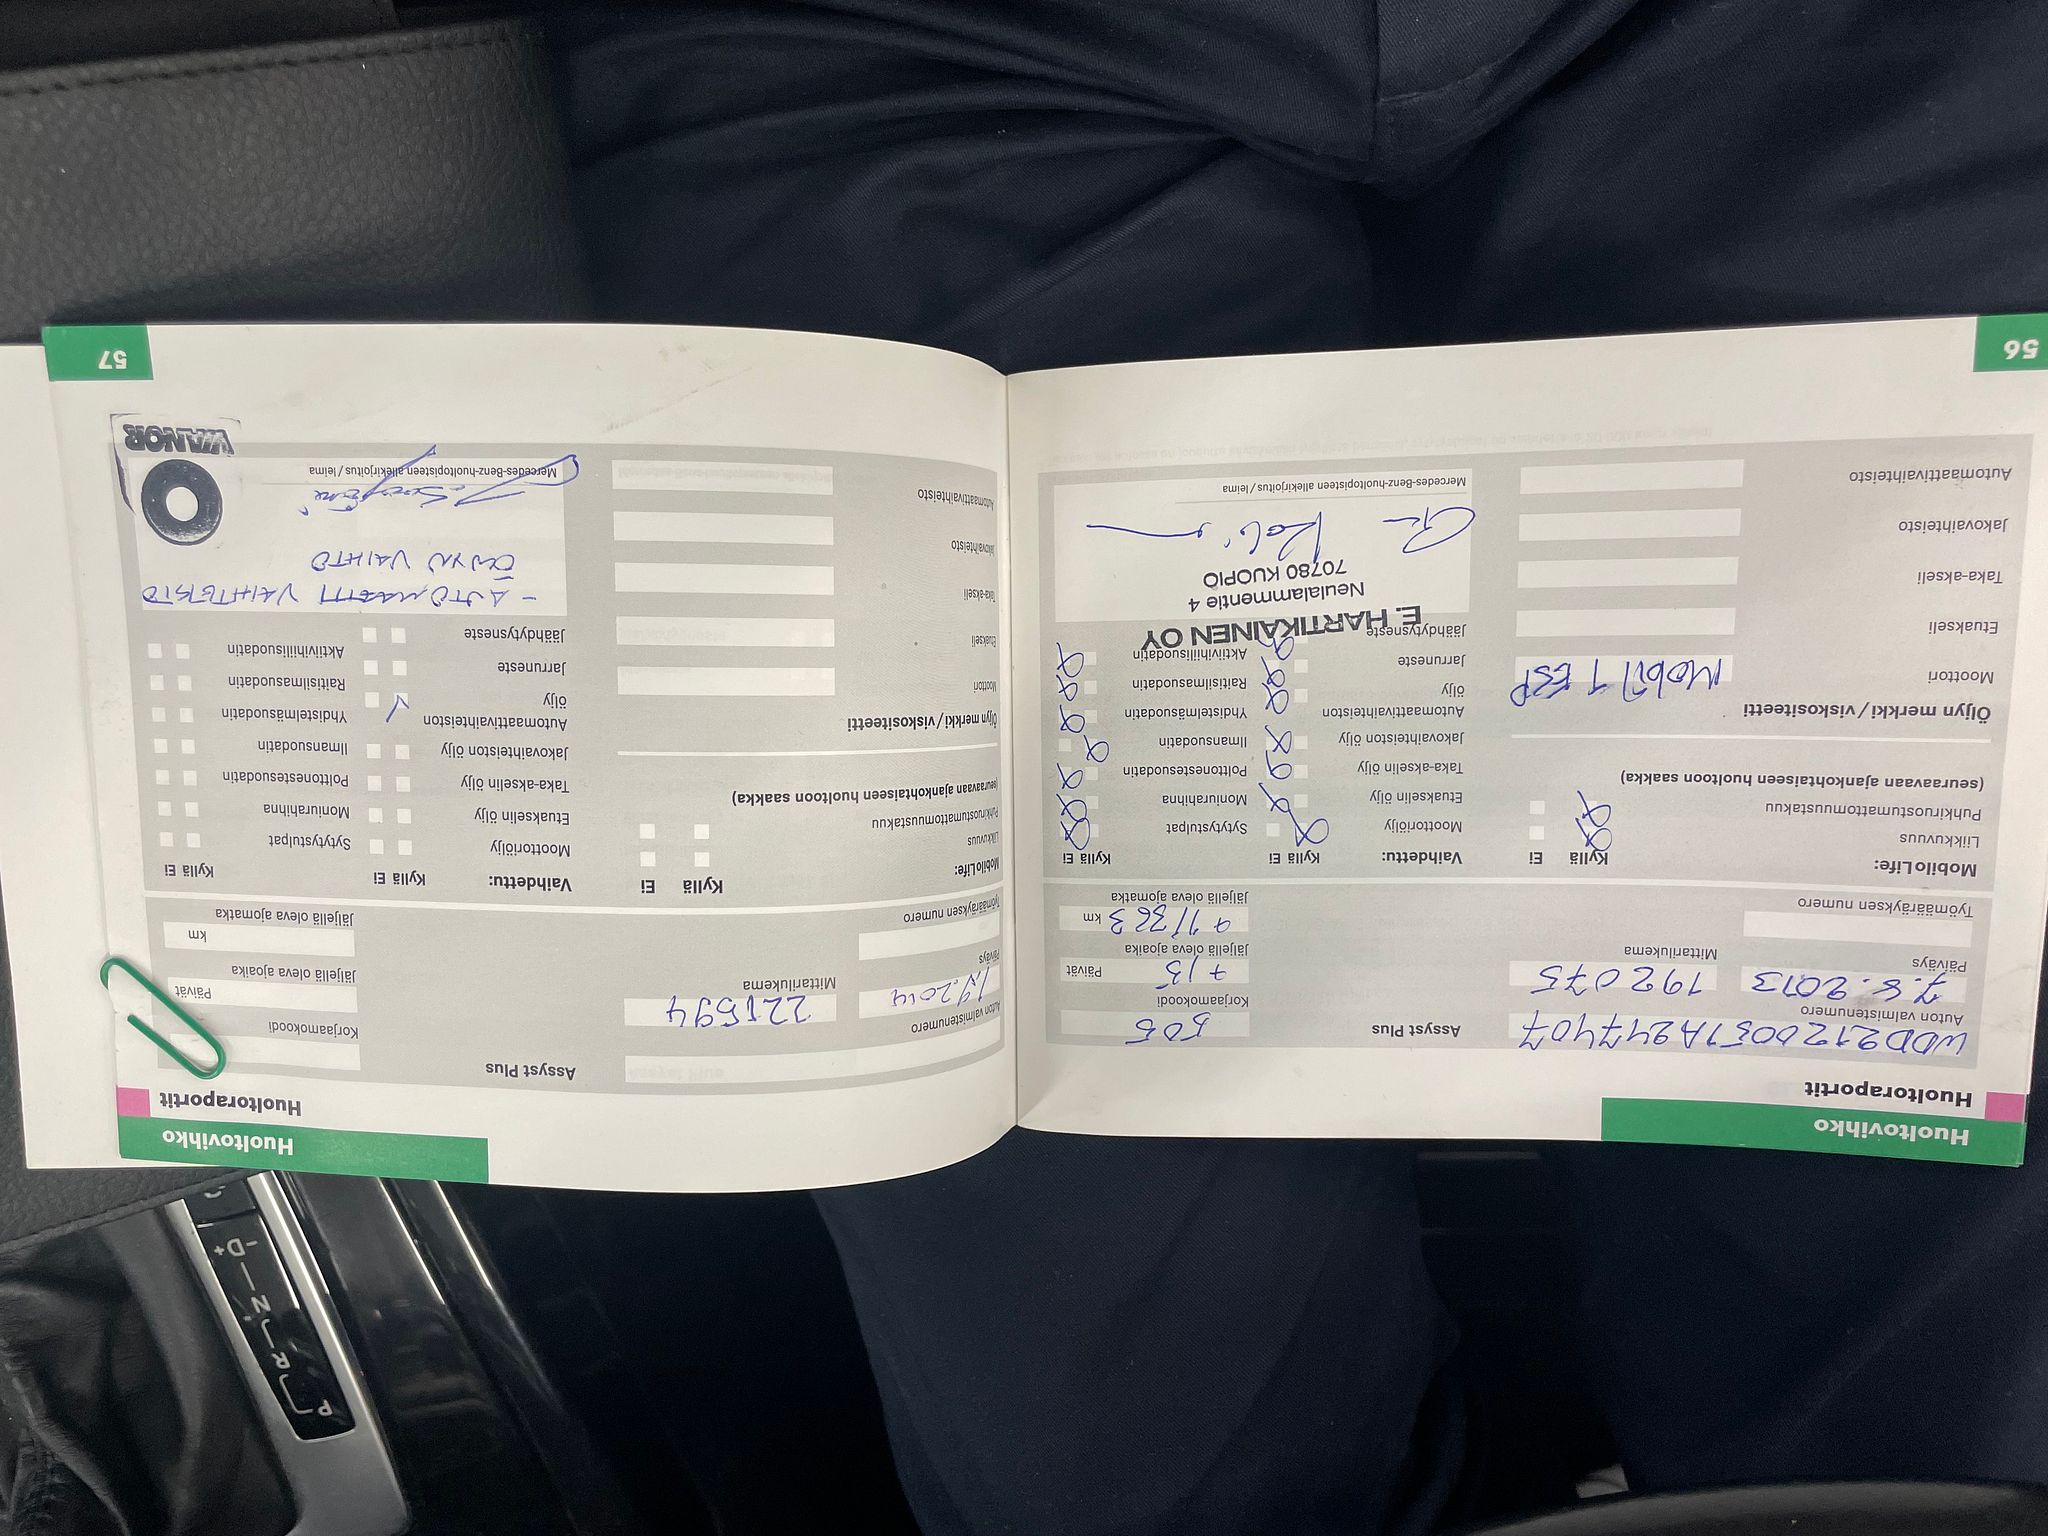 Huoltovihko
Huoltoraportit
WDD2120051A247407
Auton valmistenumero
Assyst Plus
505
Korjaamokoodi
7.8.2013
Päiväys
192075
Mittarilukema
+ 15
Päivät
Jäljellä oleva ajoaika
km
Jäljellä oleva ajomatka
Työmääräyksen numero
MobiloLife:
Kyllä Ei
Liikkuvuus
Puhkiruostumattomuustakuu
(seuraavaan ajankohtaiseen huoltoon saakka)
Öljyn merkki/viskositeetti
Moottori
Mobil 1 ESP
Etuakseli
Taka-akseli
Jakovaihteisto
Automaattivaihteisto
Vaihdettu:
Kyllä Ei
Moottoriöljy
Etuakselin öljy
Taka-akselin öljy
Jakovaihteiston öljy
Automaattivaihteiston
öljy
Jarruneste
Jäähdytysneste
Kyllä Ei
Sytytystulpat
Moniurahihna
Polttonestesuodatin
Ilmansuodatin
Yhdistelmäsuodatin
Raitisilmasuodatin
Aktiivihiilisuodatin
E. HARTIKAINEN OY
Neulalammentie 4
70780 KUOPIO
Mercedes-Benz-huoltopisteen allekirjoitus/leima
56
Huoltovihko
Huoltoraportit
Auton valmistenumero
Assyst Plus
Korjaamokoodi
1.9.2014
Päiväys
221594
Mittarilukema
Päivät
Jäljellä oleva ajoaika
km
Jäljellä oleva ajomatka
Työmääräyksen numero
MobiloLife:
Kyllä Ei
Liikkuvuus
Puhkiruostumattomuustakuu
(seuraavaan ajankohtaiseen huoltoon saakka)
Öljyn merkki/viskositeetti
Moottori
Etuakseli
Taka-akseli
Jakovaihteisto
Automaattivaihteisto
Vaihdettu:
Kyllä Ei
Moottoriöljy
Etuakselin öljy
Taka-akselin öljy
Jakovaihteiston öljy
Automaattivaihteiston
öljy
Jarruneste
Jäähdytysneste
Kyllä Ei
Sytytystulpat
Moniurahihna
Polttonestesuodatin
Ilmansuodatin
Yhdistelmäsuodatin
Raitisilmasuodatin
Aktiivihiilisuodatin
- AUTOMAATTI VAIHTEISTO
ÖLJYN VAIHTO
Mercedes-Benz-huoltopisteen allekirjoitus/leima
VIANOR
57
P
R
N
-D+
C